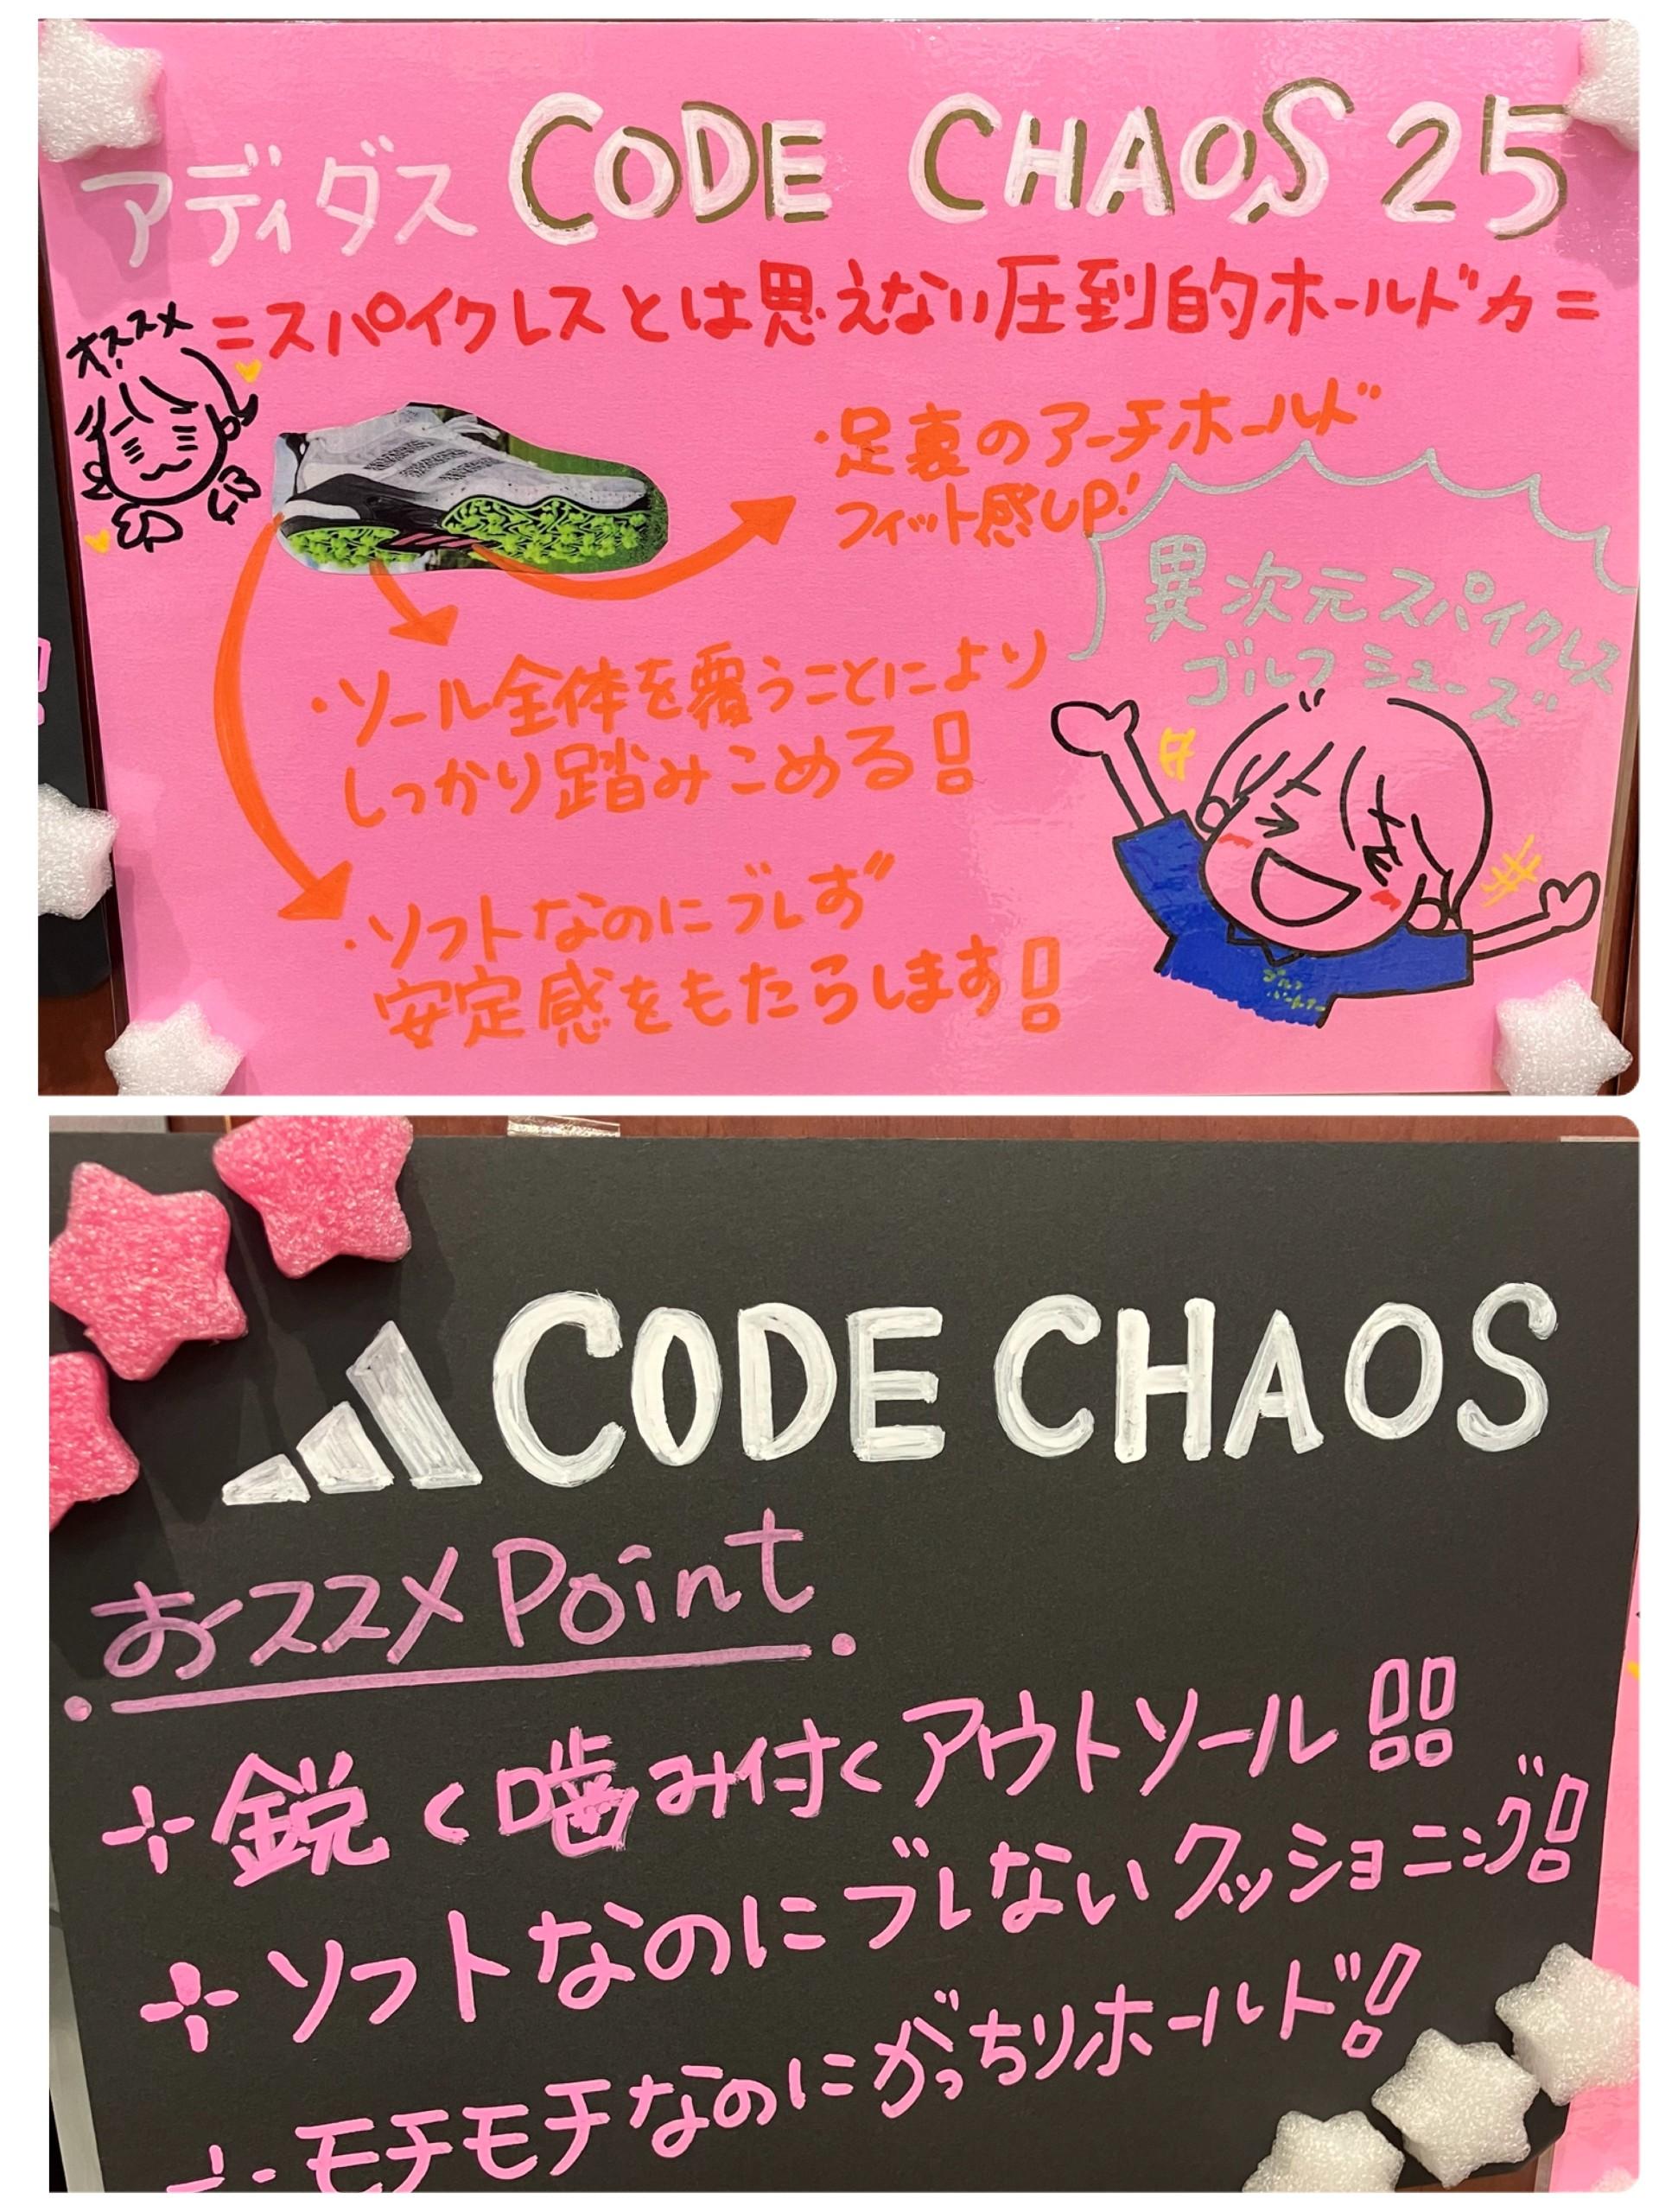 アディダス CODE CHAOS 25
=スパイクレスとは思えない圧到的ホールド力=
オススメ
・足裏のアーチホールド
フィット感UP!
異次元スパイクレス
ゴルフシューズ
・ソール全体を覆うことにより
しっかり踏みこめる!!
・ソフトなのにブレず
安定感をもたらします!!
ゴルフ
パートナー
CODE CHAOS
おススメPoint
鋭く噛み付くアウトソール!!
ソフトなのにブレないクッショニング!
モチモチなのにがっちりホールド!